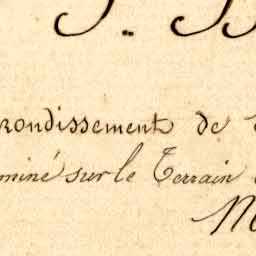 rondissement de
miné sur le Terrain
M